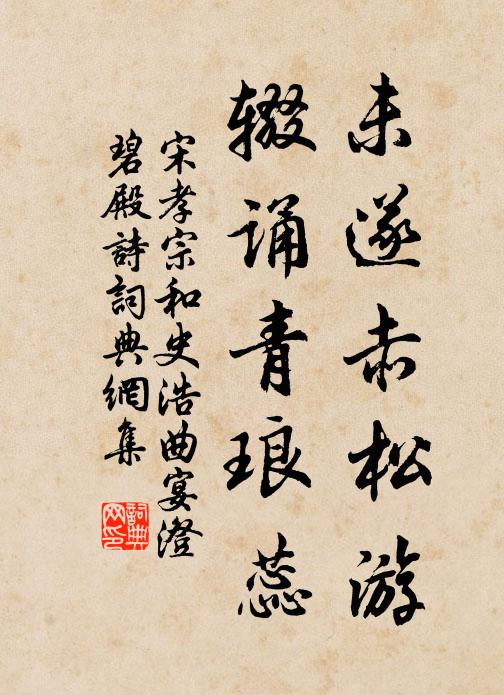 未遂赤松游
辍诵青琅蕊
宋孝宗和史浩曲宴澄
碧殿詩詞典網集
詞典
网印